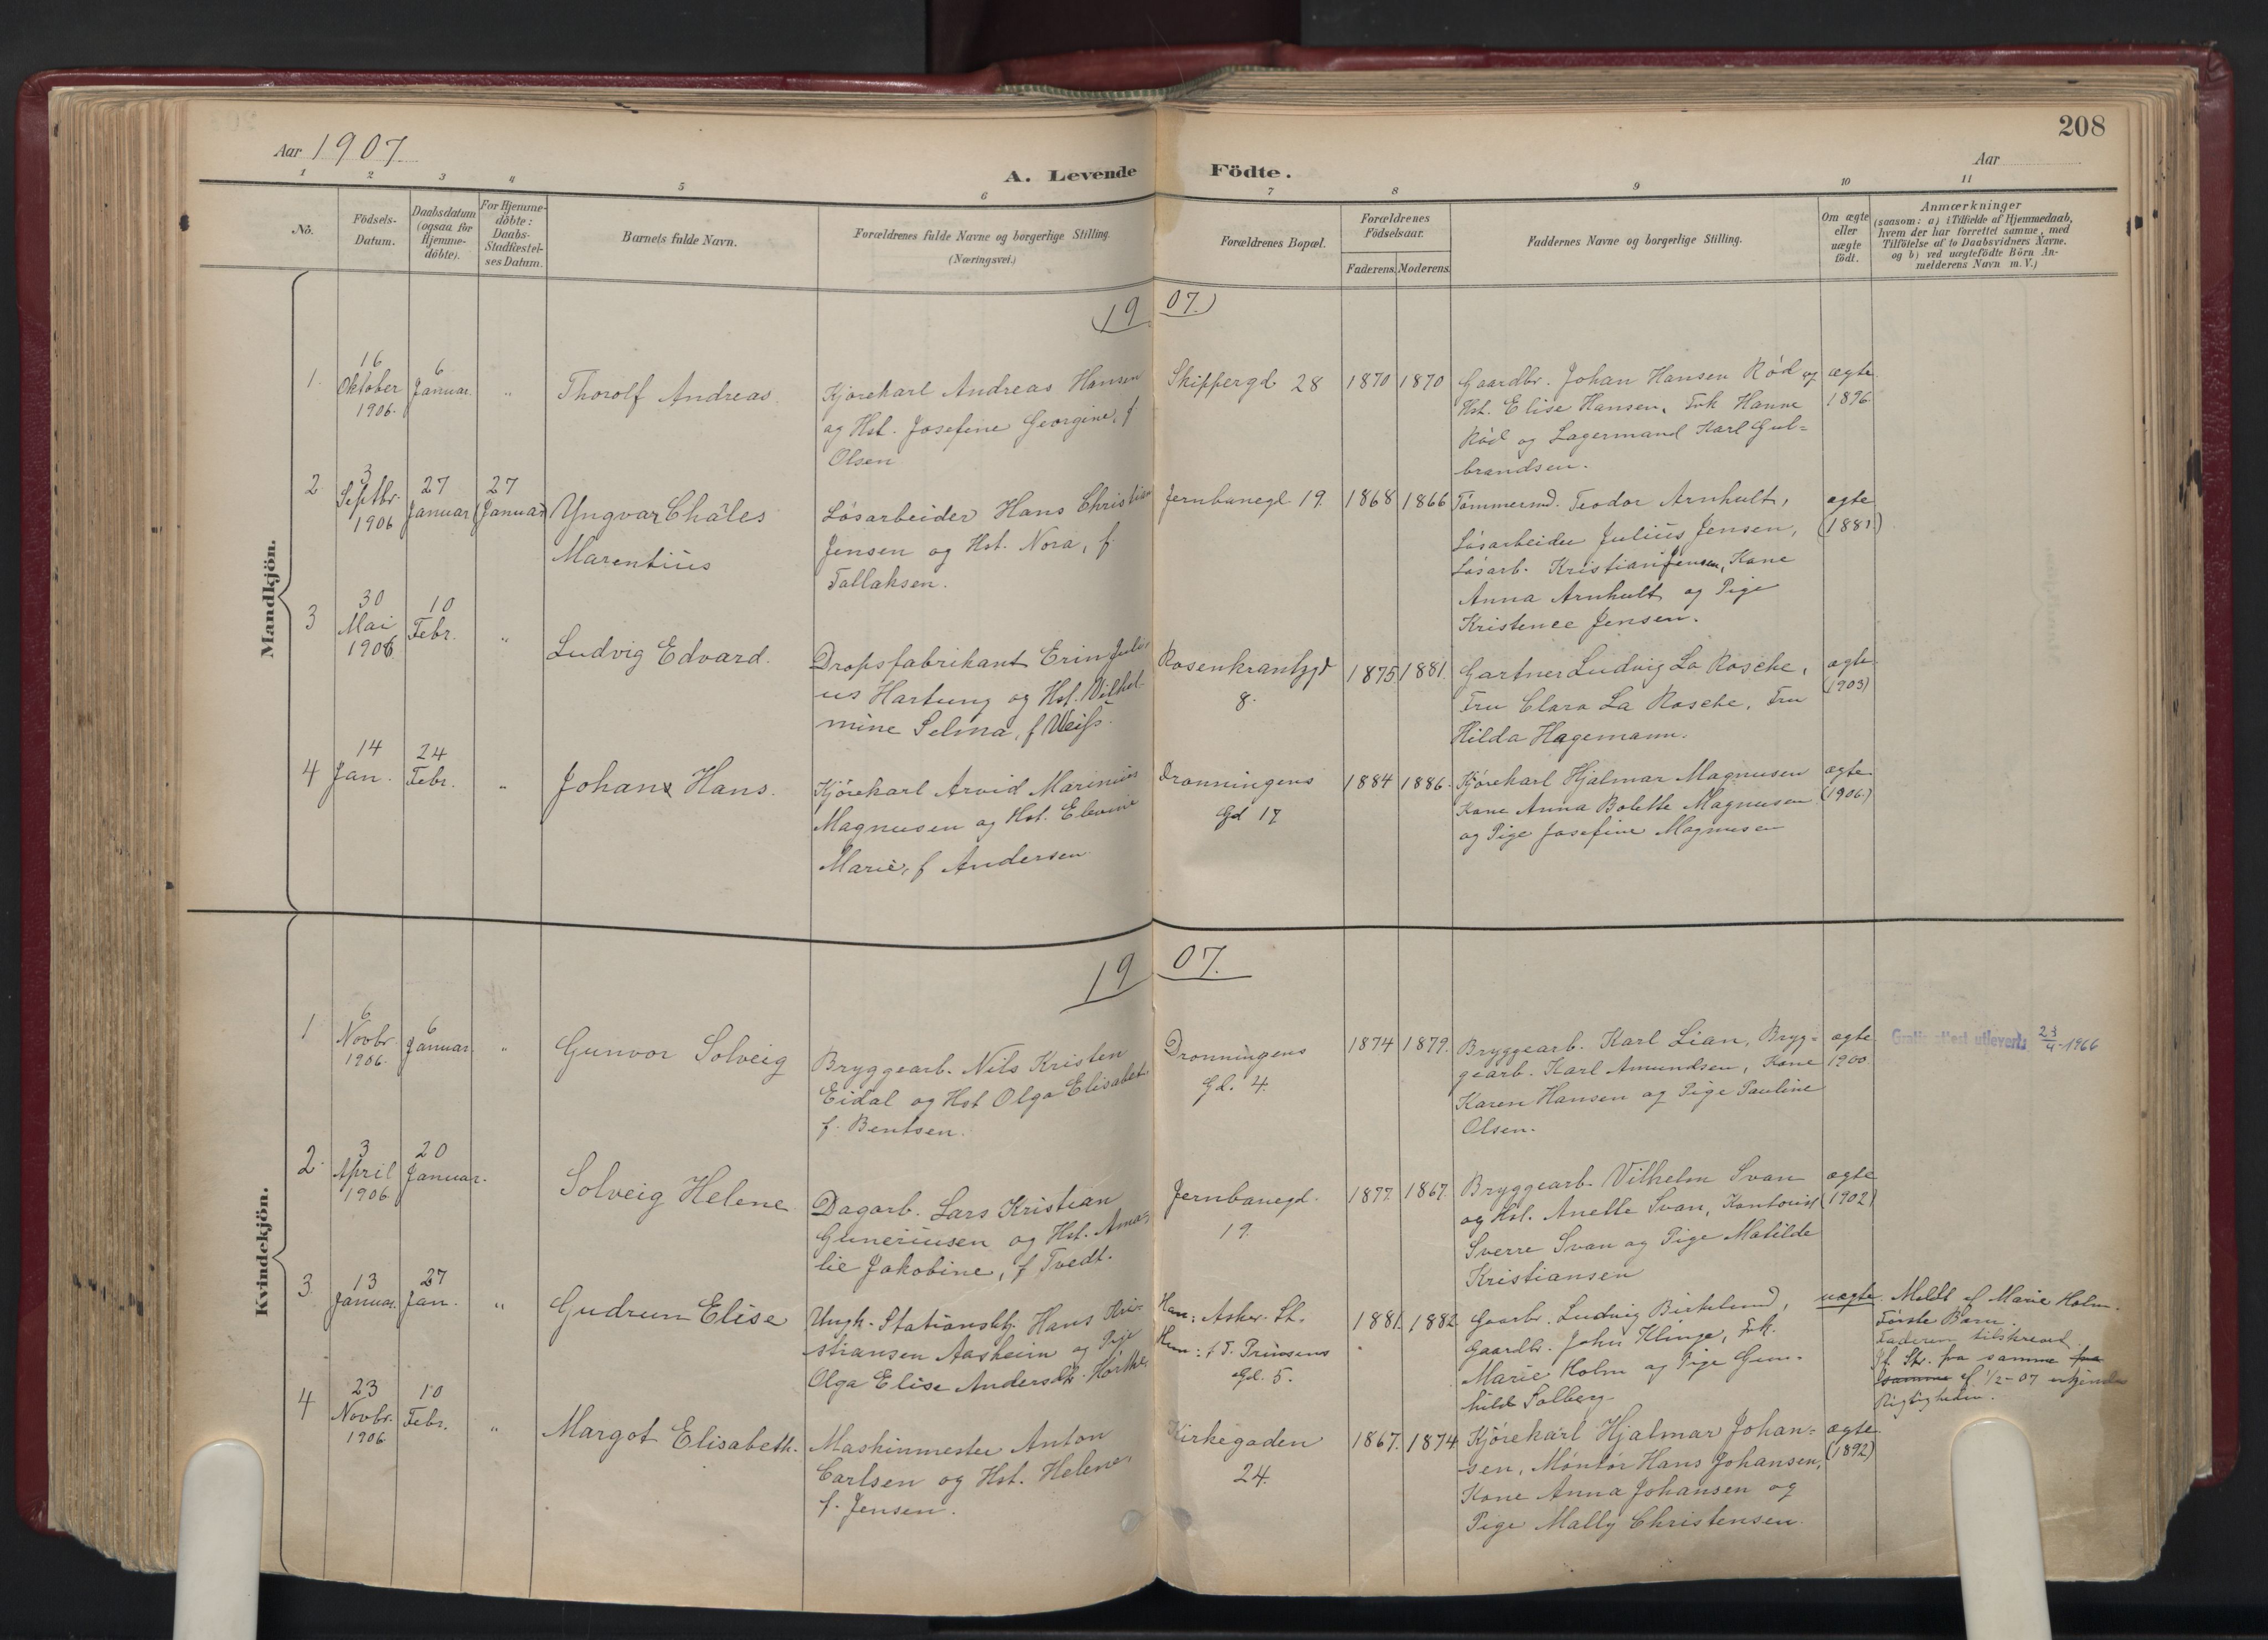 208
Aar 1907.
Aar
A. Levende Födte.
1 2 3 4 5 6 7 8 9 10 11
No.
Födsels-
Datum.
Daabsdatum
(ogsaa for
Hjemme-
döbte).
For Hjemme-
döbte:
Daabs-
Stadfæstel-
ses Datum.
Barnets fulde Navn.
Forældrenes fulde Navne og borgerlige Stilling.
(Næringsvei.)
Forældrenes Bopæl.
Forældrenes
Födselsaar.
Faderens. Moderens.
Faddernes Navne og borgerlige Stilling.
Om ægte
eller
uægte
födt.
Anmærkninger
(saasom: a) i Tilfælde af Hjemmedaab,
hvem der har forrettet samme, med
Tilföielse af to Daabsvidners Navne.
og b) ved uægtefödte Börn An-
melderens Navn m. V.)
Mandkjön.
19 07.
1.
16
Oktober
1906.
6
Januar.
"
Thorolf Andreas.
Kjørekarl Andreas Hansen
og Hst. Josefine Georgine, f.
Olsen
Skippergd 28
1870 1870
Gaardbr. Johan Hansen Rød og
Hst. Elise Hansen, Frk Hanne
Rød og Lagermand Karl Gul=
brandsen.
ægte.
1896.
2.
3
Septbr.
1906
27
Januar
27
Januar
Yngvar Chales
Marentius
Løsarbeider Hans Christian
Jensen og Hst. Nora, f.
Tallaksen.
Jernbanegd. 19.
1868 1866
Tømmermd. Teodor Arnhult,
Løsarbeider Julius Jensen,
Løsarb. Kristian Jensen, Kone
Anna Arnhult og Pige
Kristence Jensen.
ægte
(1881.)
3
30
Mai
1906.
10
Febr.
"
Ludvig Edvard.
Dropsfabrikant Erin Juli-
us Hartung og Hst. Vilhel-
mine Selma, f Weiss.
Rosenkrantzgd
8.
1875 1881.
Gartner Ludvig La Rosche,
Fru Clara La Rosche, Fru
Hilda Hagemann.
ægte.
(1903)
4
14
Jan.
24
Febr.
"
Johan Hans.
Kjørekarl Arvid Marinius
Magnusen og Hst. Elevine
Marie, f Andersen
Dronningens
Gd 17
1884 1886.
Kjørekarl Hjalmar Magnusen
Kone Anna Bolette Magnusen
og Pige Josefine Magnusen
ægte.
(1906.)
Kvindekjön.
19 07.
1
6
Novbr.
1906.
6
Januar.
"
Gunvor Solveig
Bryggearb. Nils Kristen
Eidal og Hst Olga Elisabet
f. Bentsen.
Dronningens
Gd. 4.
1874 1879.
Bryggearb. Karl Lian, Bryg=
gearb. Karl Amundsen, Kone
Karen Hansen og Pige Pauline
Olsen.
ægte.
1900.
Gratis attest utlevert 1966
2.
3
April
1906
20
Januar.
Solveig Helene
Dagarb. Lars Kristian
Guneriusen og Hst. Ama-
lie Jakobine, f Tvedt.
Jernbanegd.
19.
1877. 1867.
Bryggearb. Vilhelm Svan
og Hst. Anette Svan, Kontorist
Sverre Svan og Pige Matilde
Kristiansen
ægte
(1902)
3.
13
Januar.
27
Jan.
"
Gudrun Elise
Ungk. Stationsbtj. Hans Kri-
stiansen Aasheim og Pige
Olga Elise Andersdt.
Han: Asker St.
Hun: f T. Prinsens
Gd. 5.
1881. 1882
Gaarbr. Ludvig Birkelund,
Gaardbr. John Klinge, Frk.
Marie Holm og Pige Gun-
hild Solberg
uægte.
Meldt af Marie Holm.
Første Barn.
Faderen tilskrevet
Skr. fra samme fra
samme af 1/2-07 erkjender
Rigtigheden.
4
23
Novbr.
1906
10
Febr.
"
Margot Elisabeth.
Maskinmester Anton
Carlsen og Hst. Helene,
f. Jensen.
Kirkegaden
24.
1867. 1874
Kjørekarl Hjalmar Johan=
sen, Møntør Hans Johansen,
Kone Anna Johansen og
Pige Mally Christensen.
ægte.
(1892)